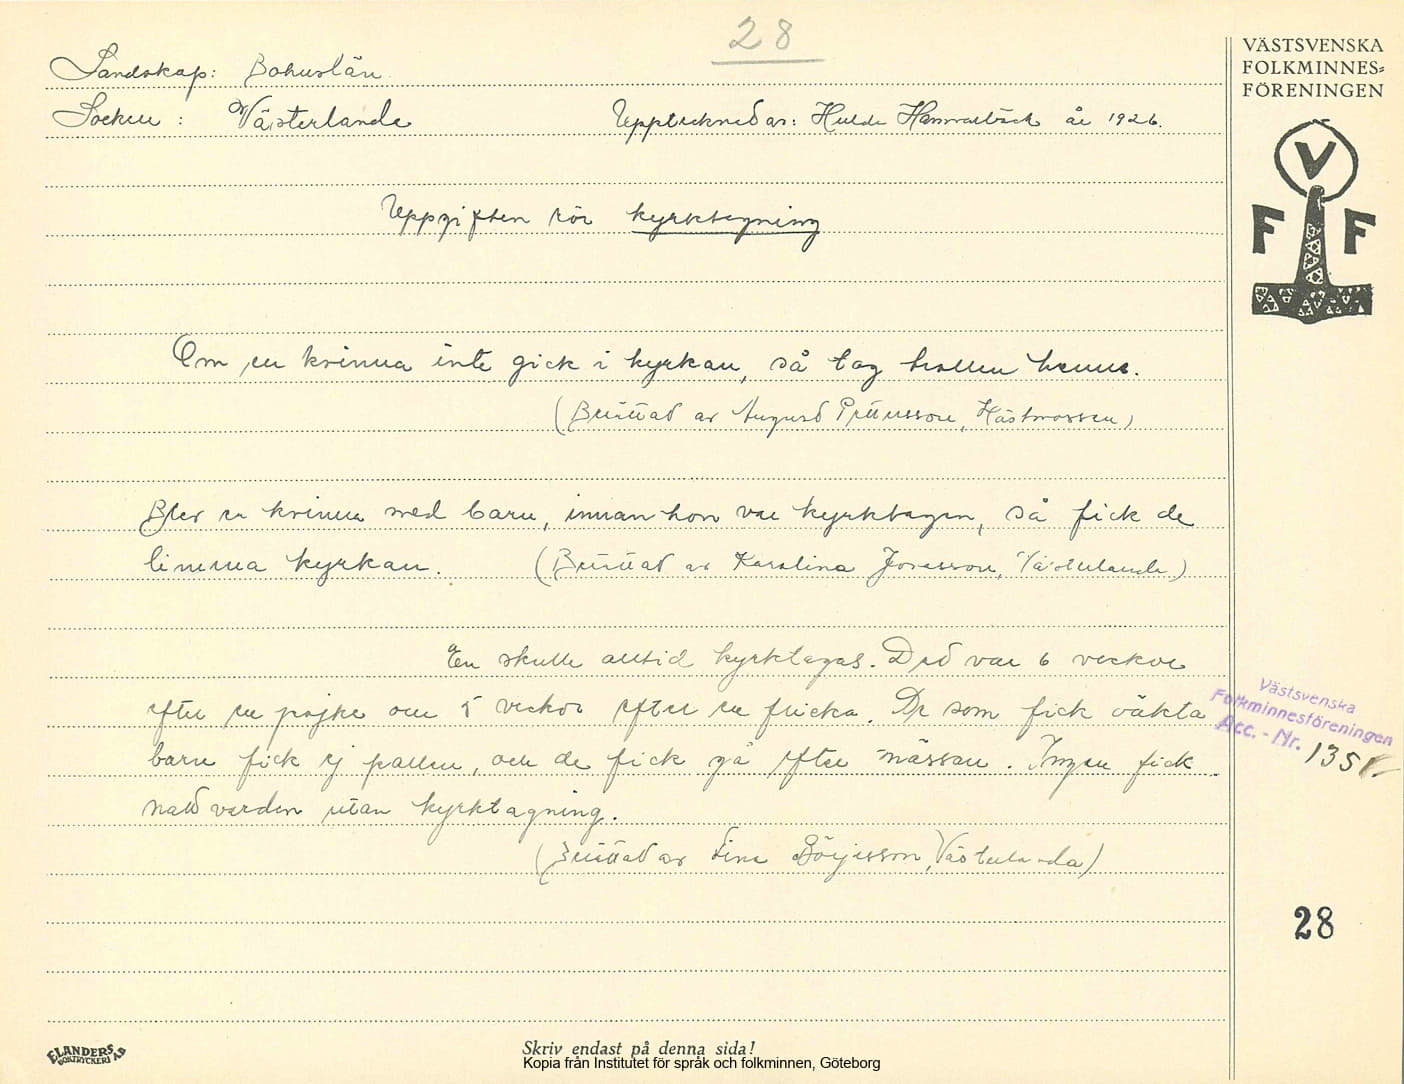 28
Landskap: Bohuslän
Socken : Västerlanda Upptecknad av: Hulda Hammarbäck år 1926.
Uppgiften rör kyrktagning
Om en kvinna inte gick i kyrkan, så tog trollen henne.
(Berättad av August Pettersson, Hästmossen)
Blev en kvinna med barn, innan hon var kyrktagen, så fick de
limma kyrkan. (Berättad av Karolina Jonasson, Västerlanda)
En skulle alltid kyrktagas. Det var 6 veckor
efter en pojke och 5 veckor efter en flicka. De som fick oäkta
barn fick ej pallen, och de fick gå efter mässan. Ingen fick
nattvarden utan kyrktagning.
(Berättad av Lina Börjesson, Västerlanda)
VÄSTSVENSKA
FOLKMINNES=
FÖRENINGEN
V
F F
Västsvenska
Folkminnesföreningen
Acc. - Nr. 135
28
ELANDERS
BOKTRYCKERI AB
Skriv endast på denna sida!
Kopia från Institutet för språk och folkminnen, Göteborg